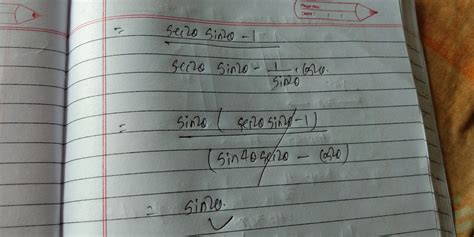 = sec2θ sin2θ - 1
sec2θ sin2θ - 1/sin2θ · cos2θ
= sin2θ ( sec2θ sin2θ - 1 )
(sin4θ sec2θ - cos2θ)
= sin2θ.